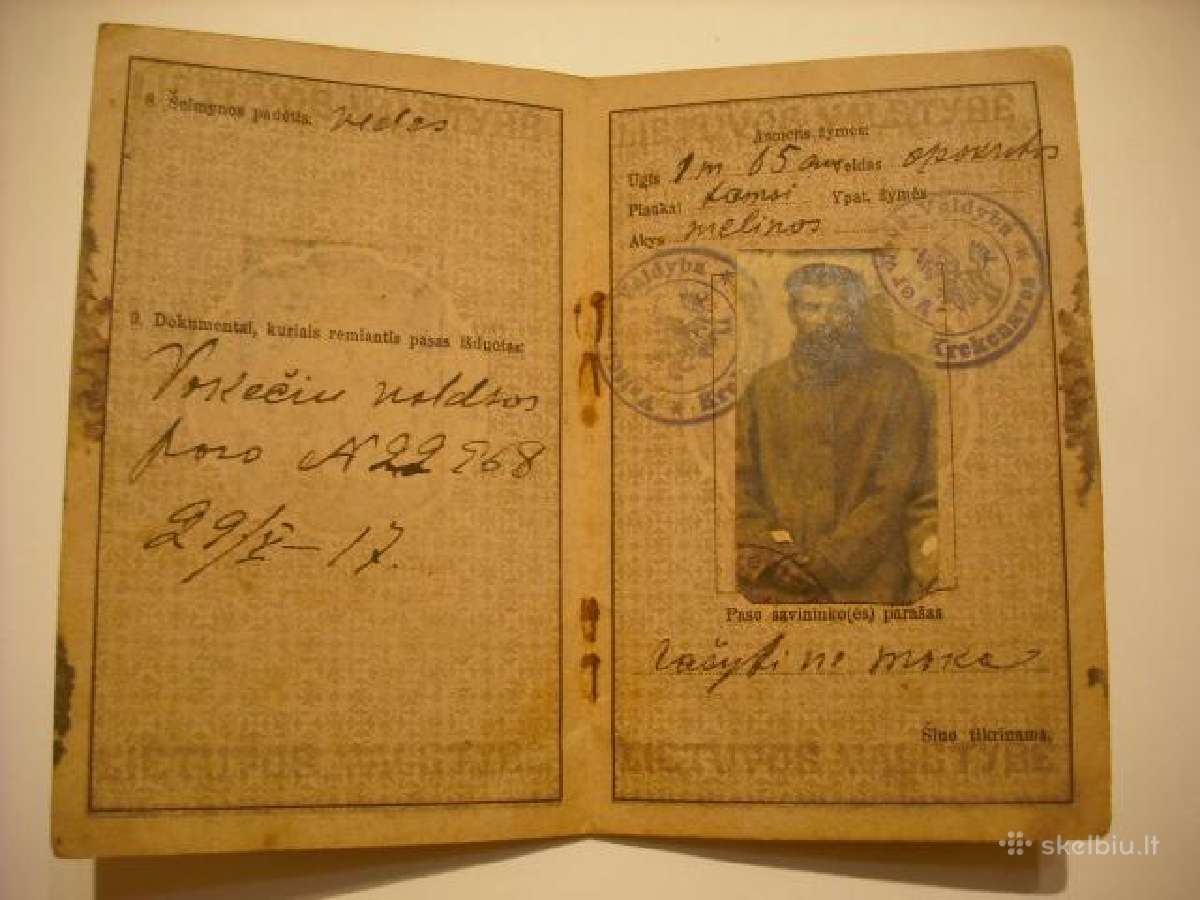 LIETUVOS VALSTYBĖ
8. Šeimynos padėtis. vedas
9. Dokumentai, kuriais remiantis pasas išduotas:
Vokečiu valdžos
paso N 22968
29/X–17.
LIETUVOS VALSTYBĖ
LIETUVOS VALSTYBĖ
Asmens žymės:
Ugis 1 m 65 cm Veidas apvalus
Plaukai tamsi Ypat. žymės
Akys melinos
Valdyba ★
Valdyba ★ Krekenavos
Paso savininko(ės) parašas
rašyti ne moka
Šiuo tikrinama,
LIETUVOS VALSTYBĖ
skelbiu.lt